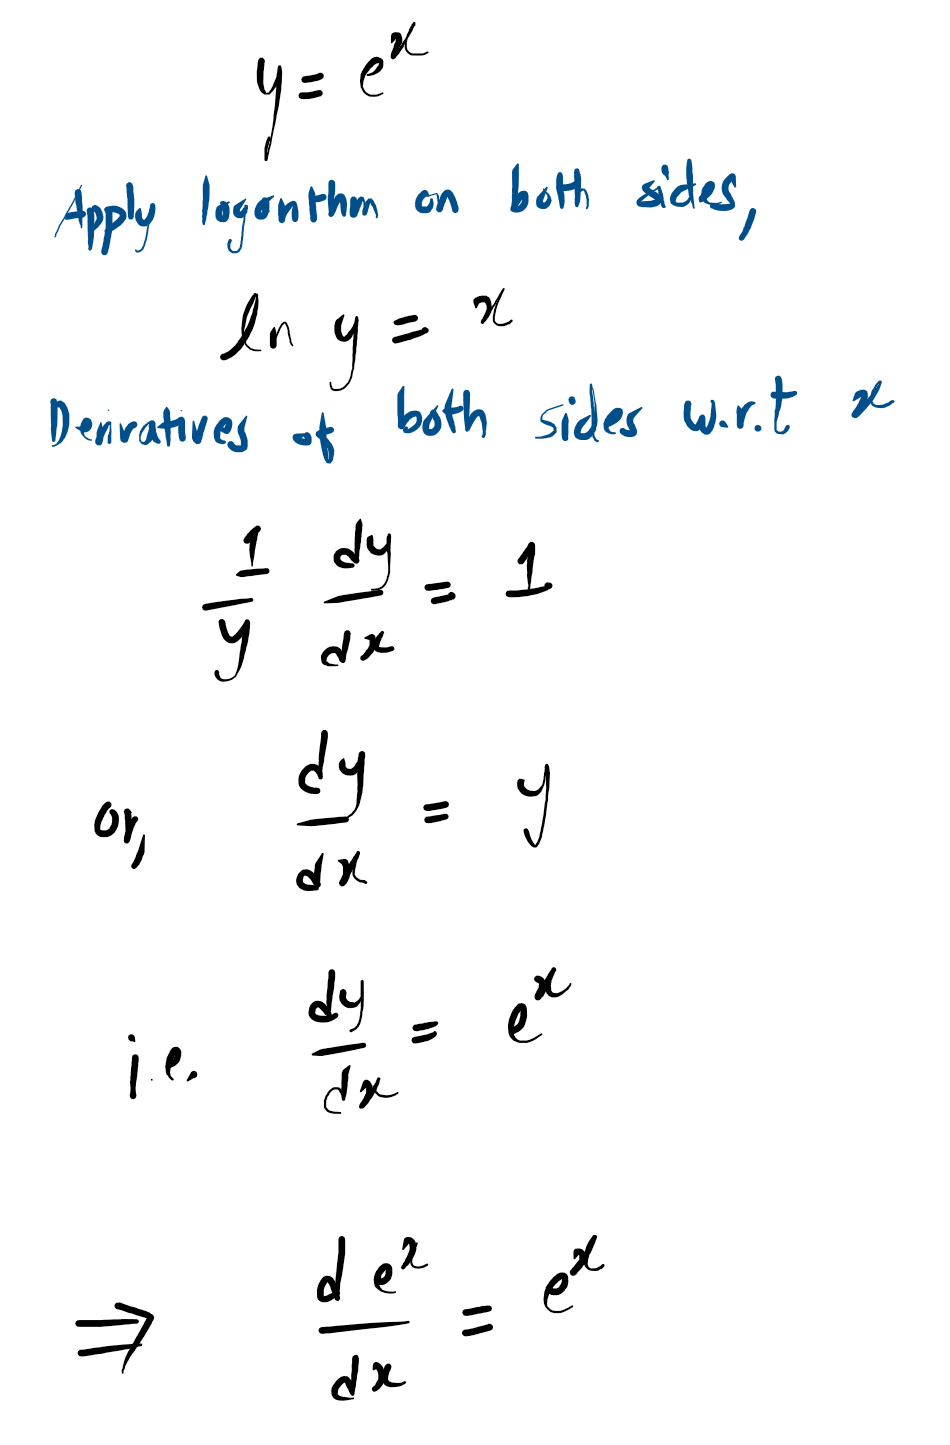 y = e^x
Apply logarithm on both sides,
ln y = x
Derivatives of both sides w.r.t x
1/y dy/dx = 1
or, dy/dx = y
i.e. dy/dx = e^x
⇒ d e^x/dx = e^x